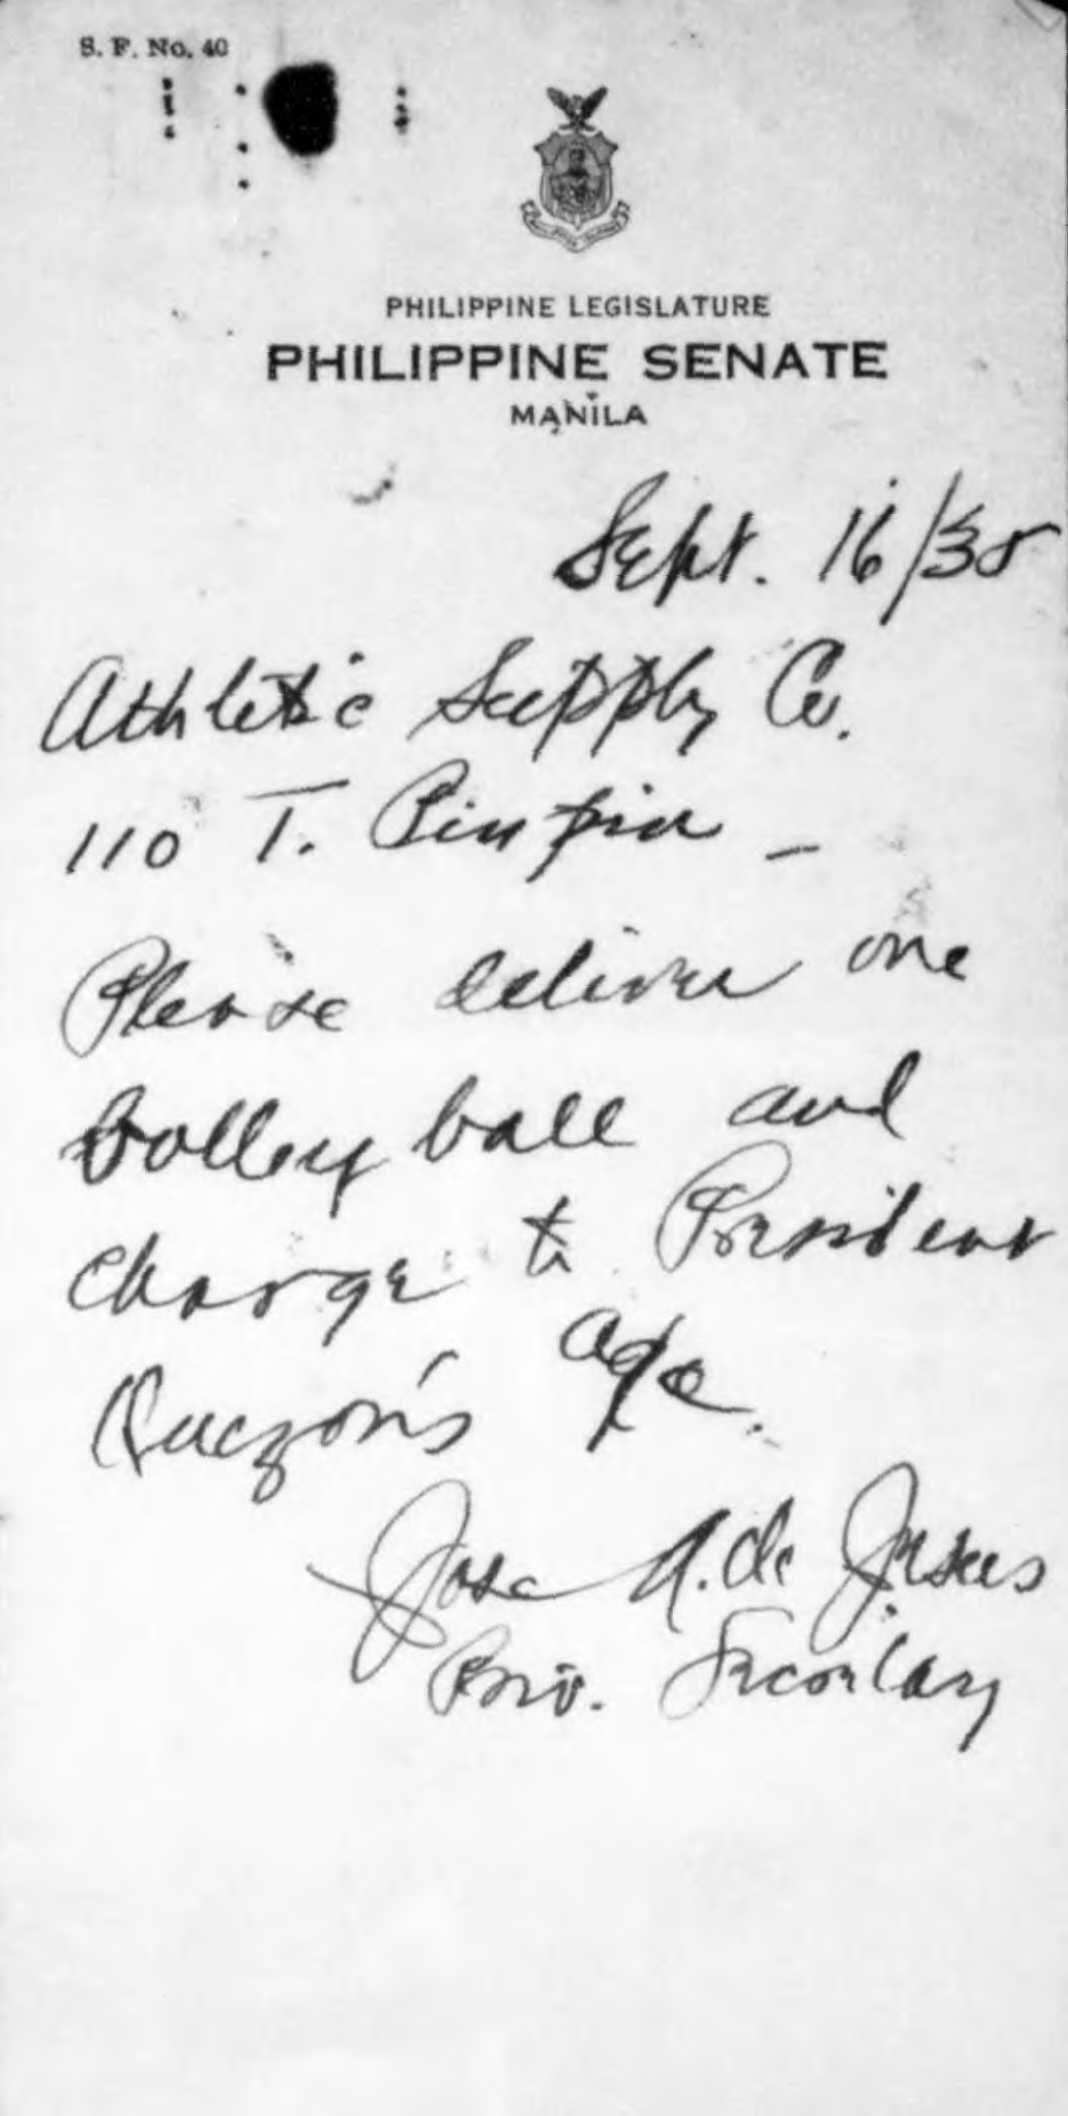 S. F. No. 40
PHILIPPINE LEGISLATURE
PHILIPPINE SENATE
MANILA
Sept. 16/35
Athletic Supply Co.
110 T. Pinpin –
Please deliver one
volley ball and
charge to President
Quezon's a/c.
Jose A. de Jesus
Priv. Secretary